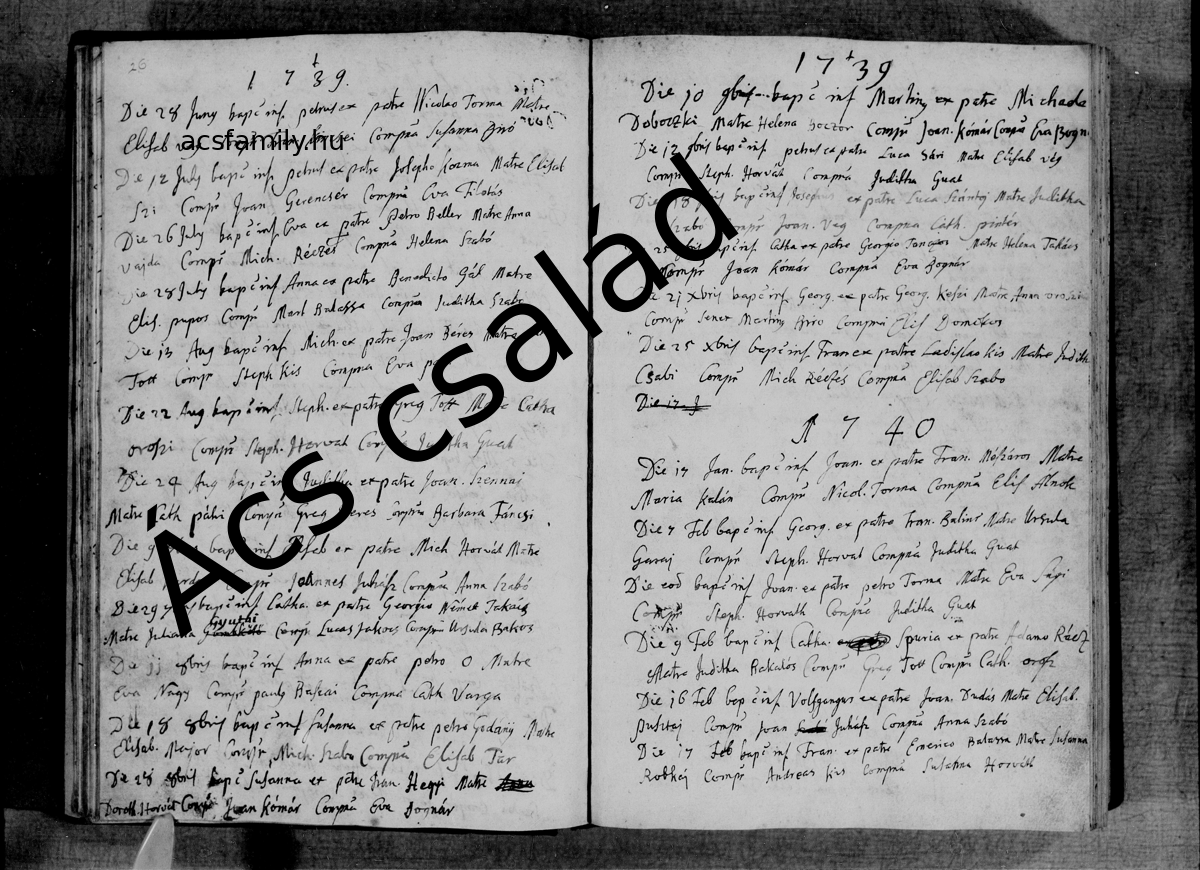 26
1739.
Die 28 Juny bapc inf petrus ex patre Nicolao Torma Matre
Elisab
acsfamily.hu
Compna Susanna Biró
Die 12 July bapc inf petrus ex patre Josepho Kozma Matre Elisab
Compr Joan Gerencsér Compna Eva Tilotás
Die 26 July bapc inf Eva ex patre Petro Beller Matre Anna
Vajda Compr Mich. Réczés Compna Helena Szabó
Die 28 July bapc inf Anna ex patre Benedicto Gál Matre
Elis. pupos Compr Balassa Compna Juditha Szabó
Die 13 Aug bapc inf Mich. ex patre Joan Béres Matre
Tott Compr Steph Kis Compna Eva
Die 22 Aug bapc inf Steph. ex patre Greg Tott Matre Catha
oroszi Compr Steph. Horvat Compna Juditha Guat
Die 24 Aug bapc inf Juditha ex patre Joan. Szennai
Matre Cath Compr Greg Beres Compna Barbara Táncsi
Die 9 bapc inf ex patre Mich Horvát Matre
Elisab Compr Johannes Juhász Compna Anna Szabó
Die 29 bapc inf Catha. ex patre Georgio Német Takács
Matre Juliana Gyuthi Compr Lucas Takocs Compna Ursula Bakos
Die 11 8bris bapc inf Anna ex patre petro O Matre
Eva Nagy Compr pauly Compna Cath Varga
Die 18 8bris bapc inf Susanna ex patre petro Godányi Matre
Elisab. Major Compr Mich. Szabo Compna Elisab Tar
Die 28 8bris bapc Susanna ex patre Fran. Hegyi Matre
Doroth. Horvat Compr Joan Kómár Compna Eva Bognár
Ács család
1739
Die 10 9bris bapc inf Martiny ex patre Michaele
Doboczki Matre Helena Compr Joan. Kómár Compna Eva Bogn
Die 12 9bris bapc inf petrus ex patre Luca Sári Matre Elisab vég
Compr Steph. Horvát Compna Juditha Guat
Die 18 9bris bapc inf Josephus ex patre Luca Szántoj Matre Juditha
Szabó Compr Joan. Veg Compna Cath. pintér
25 9bris bapc inf Catha ex patre Georgio Matre Helena Takács
Compr Joan Kómár Compna Eva Bognár
Die 21 Xbris bapc inf. Georg. ex patre Georg. Matre Anna oroszi
Compr Martiny Biro Compna Elis Domokos
Die 25 Xbris bapc inf Fran ex patre Ladislao Kis Matre Judith
Csabi Compr Mich Réczés Compna Elisab Szabo
Die 17 J
1740
Die 17 Jan. bapc inf Joan. ex patre Fran. Mészáros Matre
Maria Kalán Compr Nicol. Torma Compna Elis Álnok
Die 7 Feb bapc inf Georg. ex patre Fran. Balins Matre Ursula
Garaj Compr Steph. Horvat Compna Juditha Guat
Die eod bapc inf Joan. ex patre petro Torma Matre Eva
Compr Steph. Horvath Compna Juditha Guat
Die 9 Feb bapc inf Catha. Spuria ex patre Adamo Récz
Matre Juditha Rakolós Compr Greg Tott Compna Cath. orosz
Die 16 Feb bapc inf Volfgangus ex patre Joan. Dudás Matre Elisab.
Pusztaj Compr Joan Juhász Compna Anna Szabó
Die 17 Feb bapc inf Fran. ex patre Emerico Balassa Matre Susanna
Compr Andreas Kis Compna Susanna Horváth